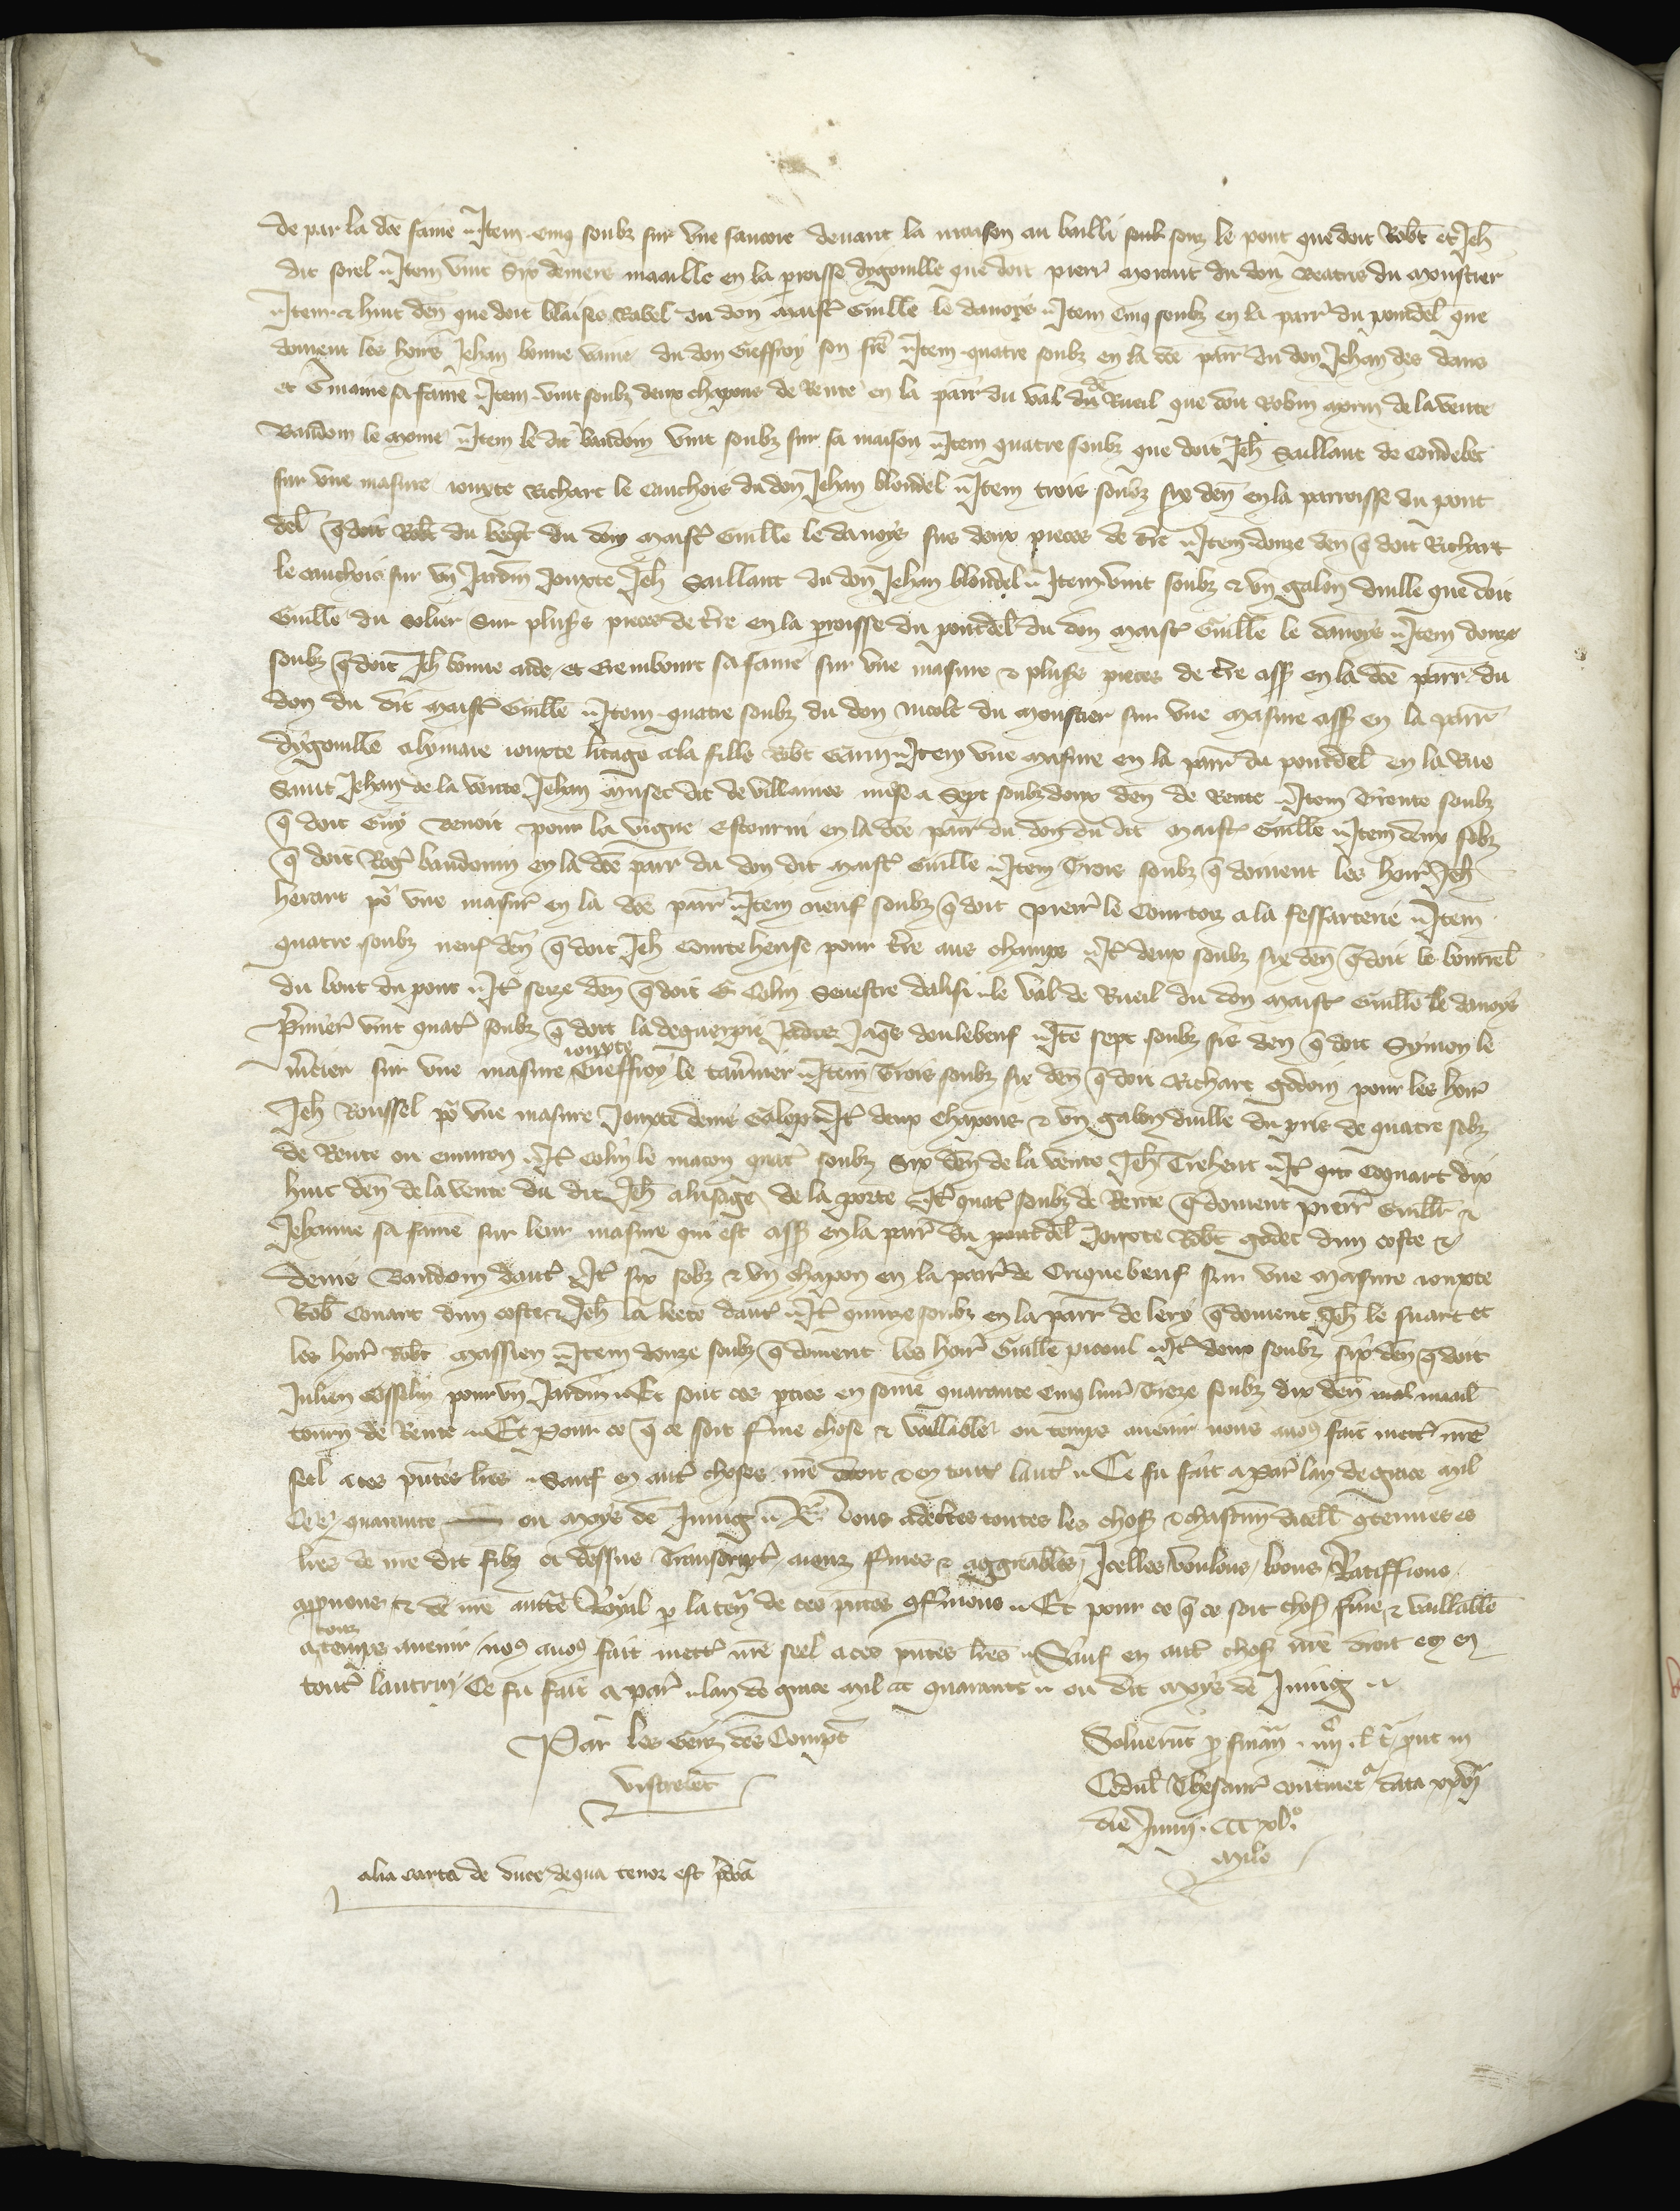 de par la dce fame Item cinq soubz sur vne sancoie deuant la maison au bailli seur le pont que doit Robt et Jeh
dit sorel Item vint six deniers maaille en la proisse dygouille que doit pierr morant du don Beatris du moustier
Item & huit den que doit blaises Rabel du don maist Guille le danoys Item cinq soubz en la parr du pontdel que
doiuent les hoirs Jehan bonne vaine du don Gieffroy son fre Item quatre soubz en la dce parr du don Jehan des dans
et Emmaine sa fame Item vint soubz deux chapons de Rente en la parr du val de Rueil que doit Robin morin de la vente
Baudoin le moine Item le dit baudoin vint soubz sur sa maison Item quatre soubz que doit Jeh Saillant de Caudebec
sur vne masure iouxte Richart le Cauchois du don Jehan blondel Item trois soubz six den en la parroisse du pont
del q doit Robt du bec du don maist Guille le danoys sus deux pieces de tre Item douze den q doit Richart
le cauchois sur vn Jardin Jouxte Jeh Saillant du don Jehan blondel Item vint soubz & vn galon duille que doit
Guille du solier Sur plus's pieces de tre en la proisse du pontdel du don maist Guille le danoys Item douze
soubz q doit Jeh bonne aide et Erembourc sa fame sur vne masure & plus's pieces de tre ass en la dce parr du
don du dit maist Guille Item quatre soubz du don nicole du moustier sur vne masure ass en la parr
dygouille alymare iouxte litage a la fille Robt Garin Item vne masure en la parr du pontdel en la Rue
Saint Jehan de la vente Jehan musec dit de villaines mise a Sept soubz deux den de Rente Item Trente soubz
q doit Guy Benoit pour la vigne Estourmi en la dce parr du don du dit maist Guille Item deux solz
q doit Rog baudouin en la dce parr du don dit maist Guille Item Trois soubz q doiuent les hoir Jeh
herart po vne masur en la dce parr Item neuf soubz q doit pierr le Courtois a la fessarterie Item
quatre soubz neuf den q doit Jeh Courteheuse pour tre aus champs It deux soubz six den q doit le bourrel
du bout du pont It seize den q doit Colin Seuestre dalisi le val de Rueil du don maist Guille le danoys
Primier vint quatr soubz q doit la deguerpie Jaqs doulebeuf Ite sept soubz sis den q doit Symon le
mercier sur vne masure iouxte Gieffroy le tauernier Item Trois soubz six den q doit Richart godoin pour les hoir
Jeh Roussel po vne masure Jouxte denis Galop It deux Chapons & vn galon duille du pris de quatre solz
de Rente ou enuiron It Colin le macon quatr soubz Six den de la vente Jeh Trehent It Coquart dix
huit den de la vente du dit Jeh alusage de la porte It quatr soubz de Rente q doiuent pierr Guill &
Jehanne sa fame sur leur masure qui est ass en la parr du pontdel Jouxte Robt godet dun coste &
denis Baudoin daut It six solz & vn chapon en la parr de Criquebeuf sur vne masure iouxte
Rob Couart dun coste & Jeh la beete daut It quinze soubz en la parr de lery q doiuent Jeh le suart et
les hoir Robt massieu Item douze soubz q doiuent les hoir Guille picoul It deux soubz six den q doit
Julien Gosselin pour vn Jardin Et sont ces pties en some quarante cinq liur Treze soubz dix den maail
tourn de Rente Et Pour ce q ce soit ferme chose & vallable ou temps auenir nous auos fait mett nre
seel a ces pntes lres Sauf en aut choses nre droit & en tout laut Ce fu fait a Par lan de grace mil
CCC quarante ou moys de Juing Nous adecertes toutes les chos & chascun dicell gtenues es
lres de nre dit filz ci dessus Transcript aienz fmes & aggreables Jcelles voulons loons Ratiffions
approuons & de nre aucte Royal p la ten de ces pntes gfermons Et pour ce q ce soit chos ferme & vaillable
a touz temps auenir nos auos fait mett nre seel a ces pntes lres Sauf en aut chos nre droit et en
tout lautruy Ce fu fait a par lan de grace mil CCC quarante ou dit moys de Juing
Par les Genz des Compt
Vistrebec
Soluerut p finan l t put in
Cedul Thesaur continet data
die Junii CCC xl°
Milo
alia carta de duce de qua tenor est